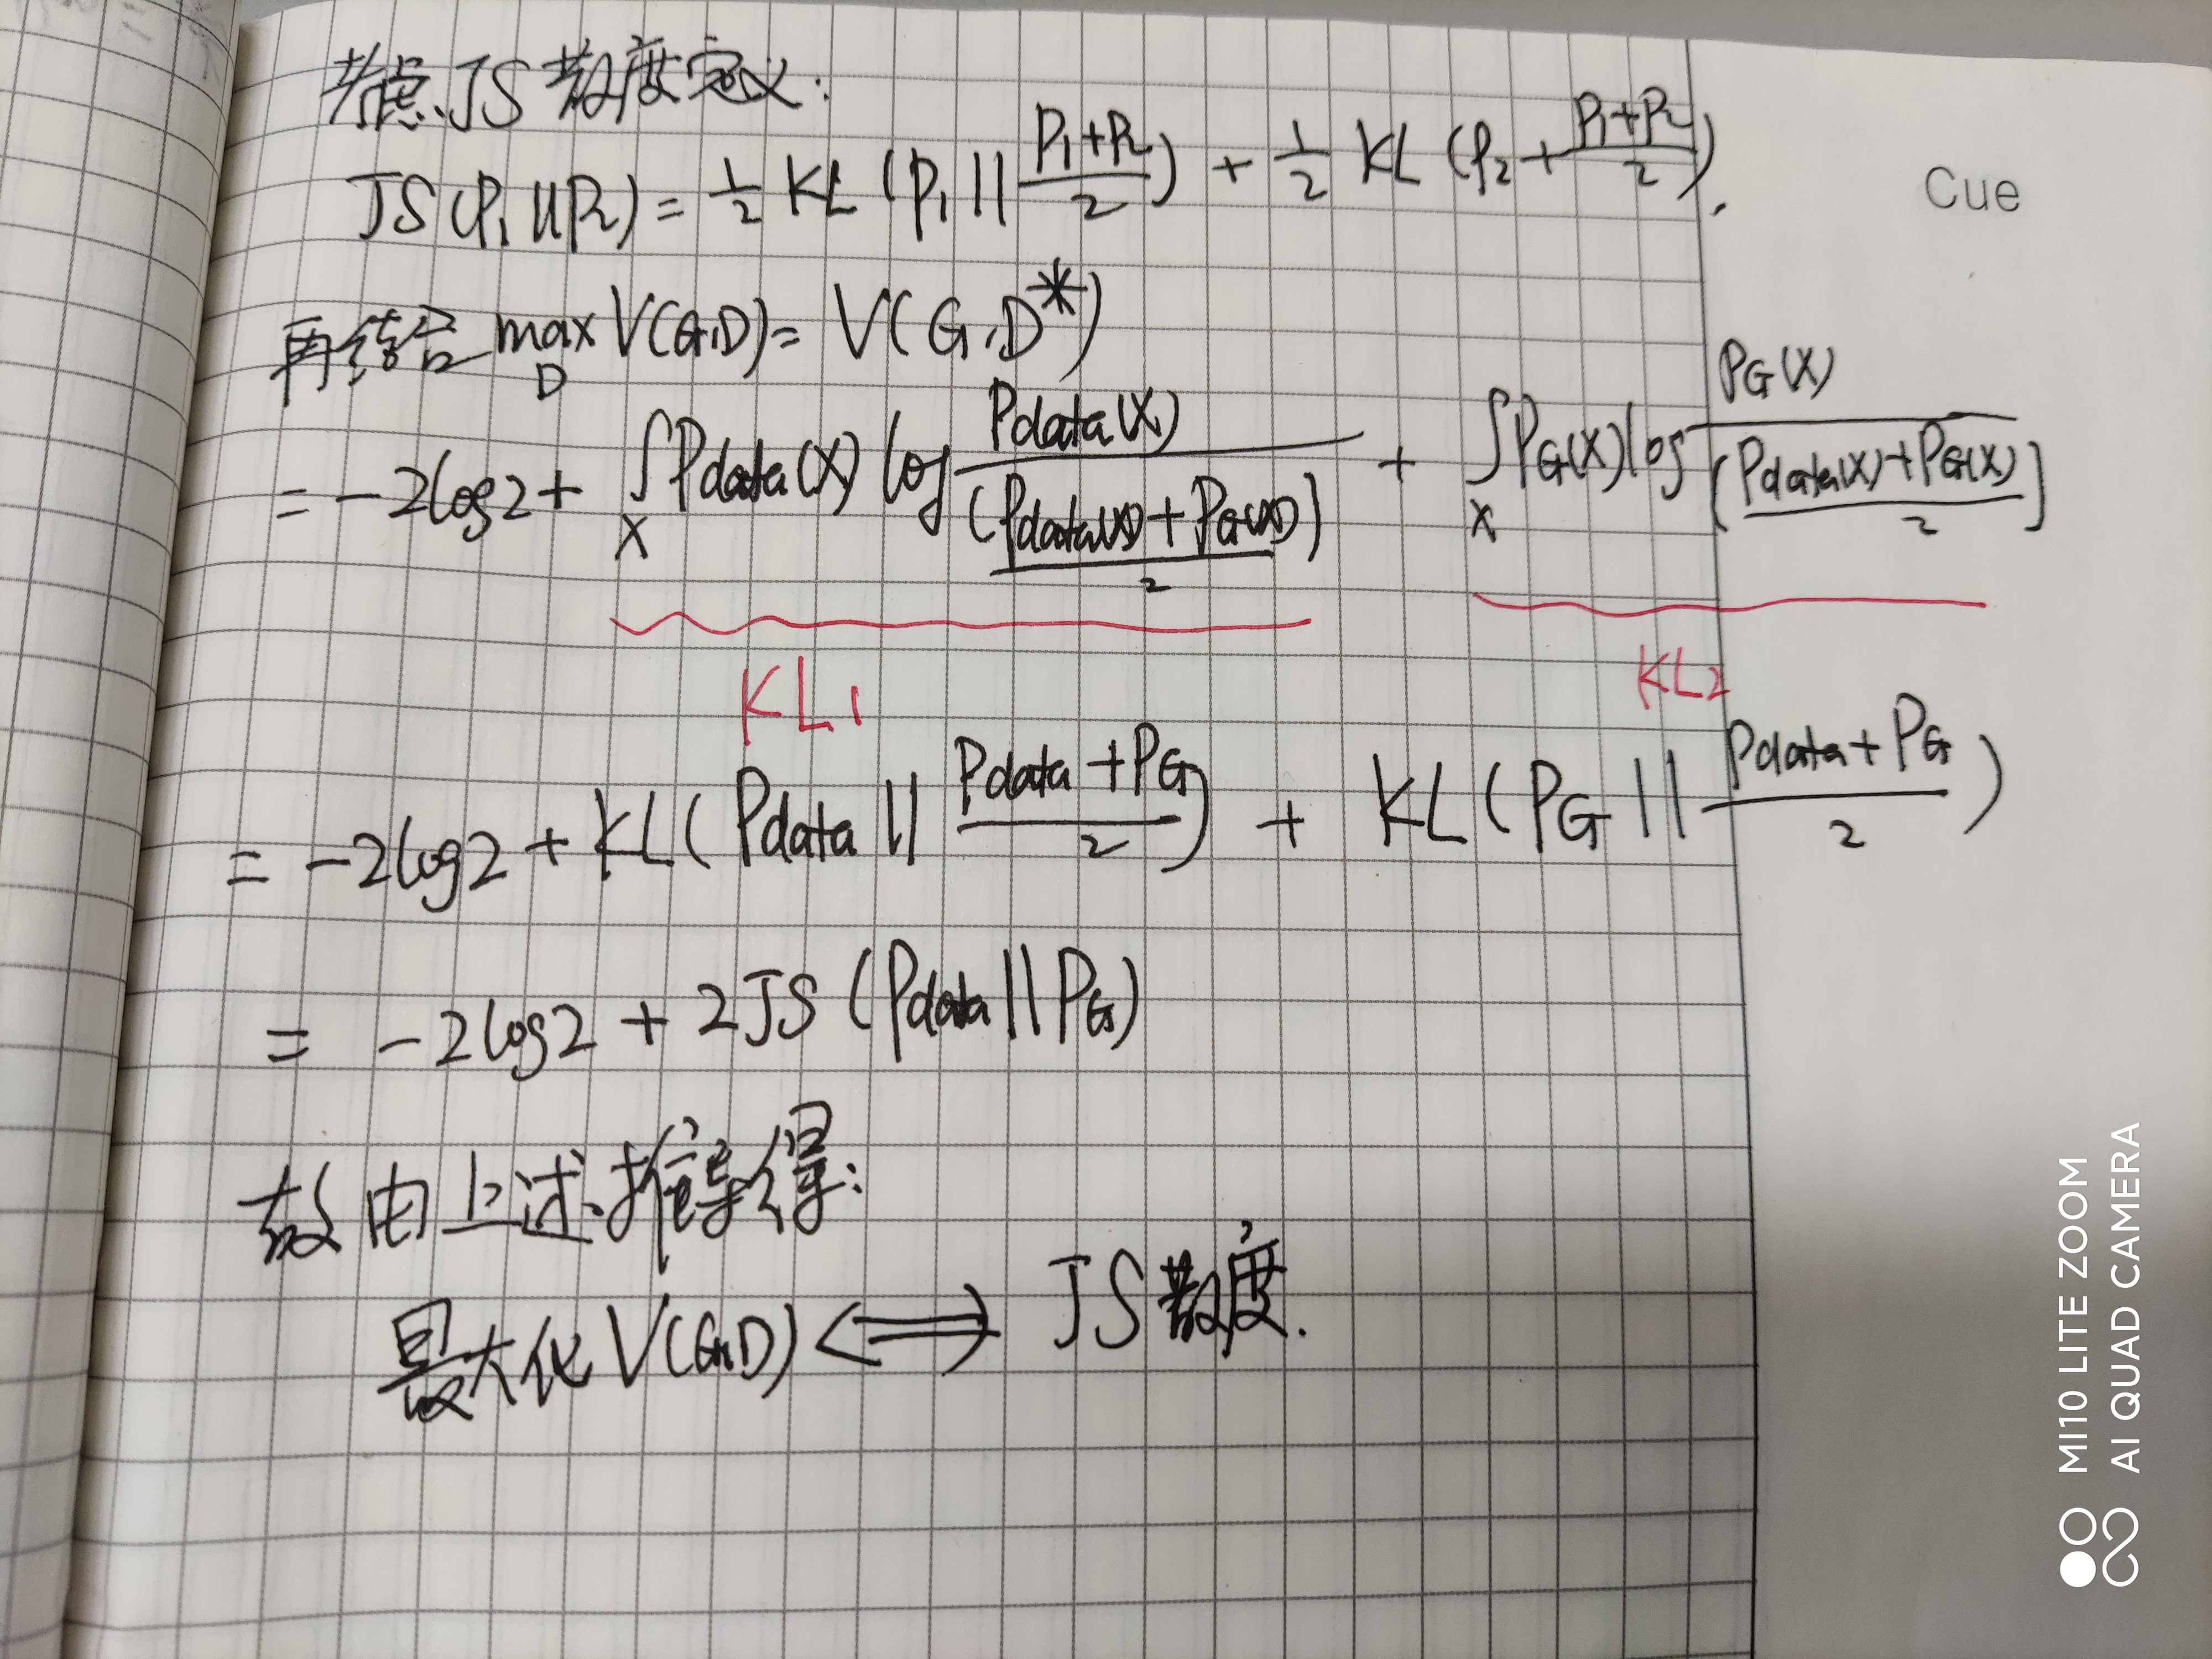 考虑JS散度定义:
JS(P₁||P₂) = 1/2 KL (P₁ || (P₁+P₂)/2) + 1/2 KL (P₂ + (P₁+P₂)/2).
Cue
再结合 max_D V(G,D) = V(G,D*)
= -2log2 + ∫_x Pdata(x) log Pdata(x)/((Pdata(x)+PG(x))/2) + ∫_x PG(x) log PG(x)/((Pdata(x)+PG(x))/2)
KL₁ KL₂
= -2log2 + KL(Pdata || (Pdata+PG)/2) + KL(PG || (Pdata+PG)/2)
= -2log2 + 2JS (Pdata || PG)
故由上述推导得:
最大化V(G,D) ⟺ JS散度.
MI10 LITE ZOOM
AI QUAD CAMERA